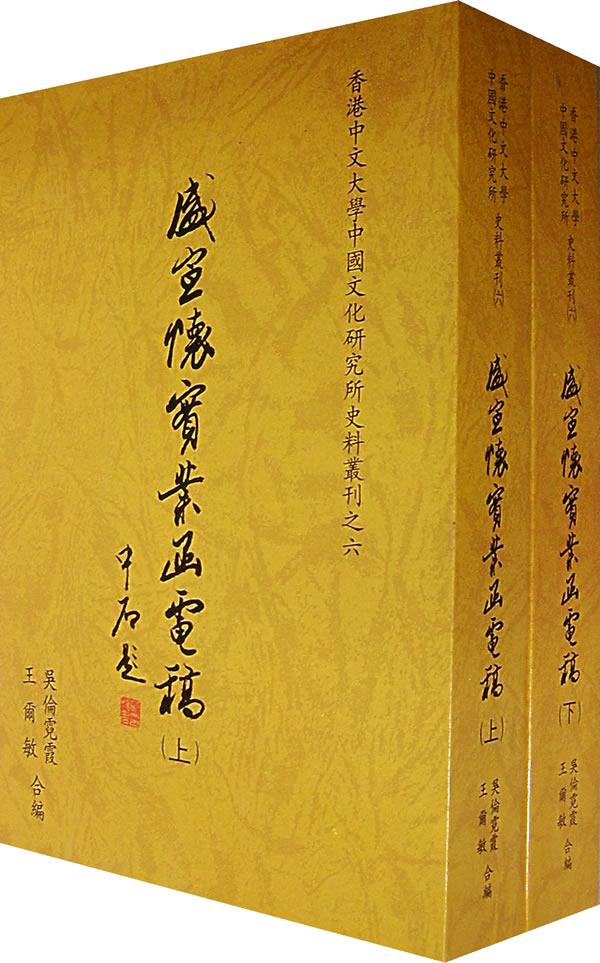 香港中文大學中國文化研究所史料叢刊之六
盛宣懷實業函電稿
(上)
中石題
吳倫霓霞
王爾敏
合編
香港中文大學
中國文化研究所
史料叢刊(六)
盛宣懷實業函電稿
(上)
吳倫霓霞
王爾敏
合編
香港中文大學
中國文化研究所
史料叢刊(六)
盛宣懷實業函電稿
(下)
吳倫霓霞
王爾敏
合編